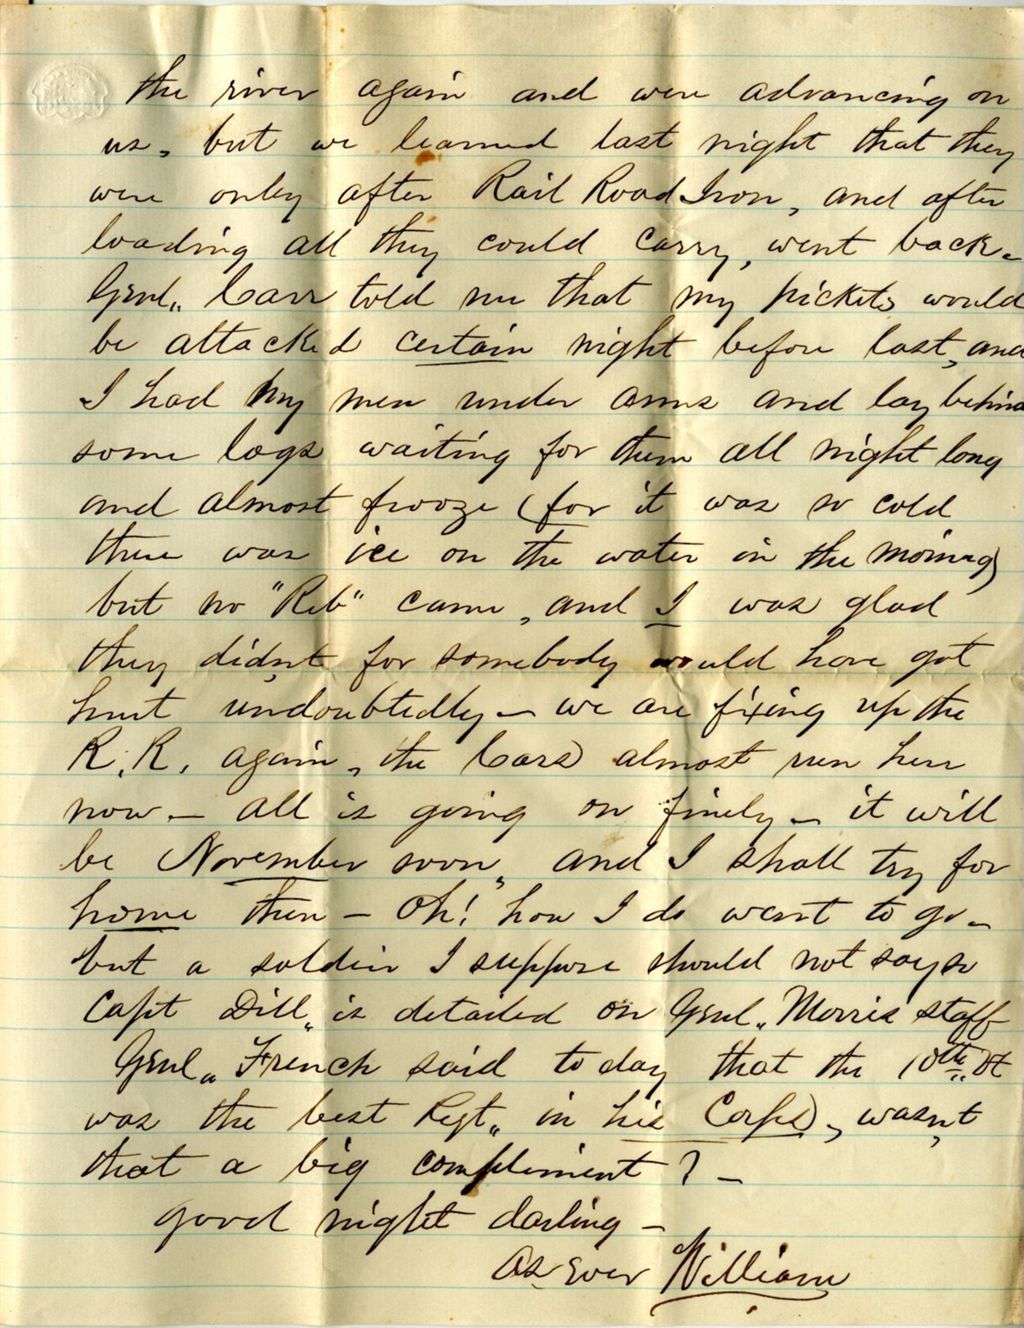 the river again and were advancing on
us, but we learned last night that they
were only after Rail Road Iron, and after
loading all they could carry, went back.
Genl,, Carr told me that my pickets would
be attacked certain night before last, and
I had my men under arms and lay behind
some logs waiting for them all night long
and almost frooze (for it was so cold
there was ice on the water in the morning)
but no "Reb" came, and I was glad
they didn,t for somebody would have got
hurt undoubtedly – we are fixing up the
R. R. again, the Cars almost run here
now – all is going on finely – it will
be November soon, and I shall try for
home then – Oh! how I do want to go –
but a soldier I suppose should not say so
Capt Dill,, is detailed on Genl,, Morris staff
Genl,, French said to day that the 10th,, Vt
was the best Regt,, in his Corps, wasn,t
that a big compliment? –
good night darling –
As Ever William